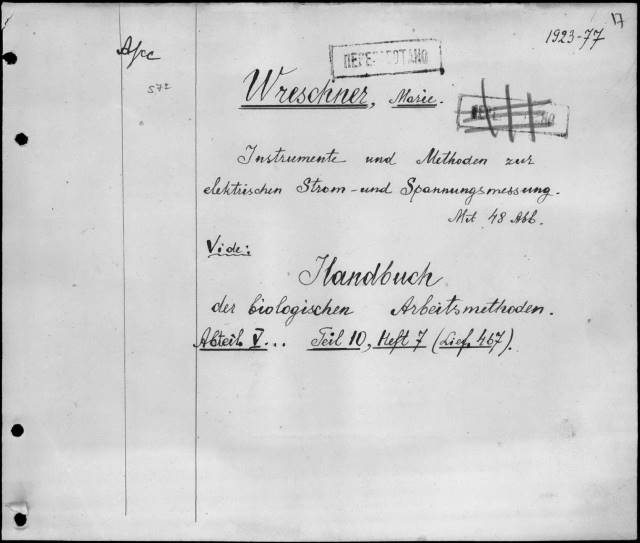 17
1923-77
Wreschner, Marie.
572
Instrumente und Methoden zur
elektrischen Strom- und Spannungsmessung.
Mit 48 Abb.
Vide:
Handbuch
der biologischen Arbeitsmethoden.
Abteil. V... Teil 10, Heft 7 (Lief. 467).